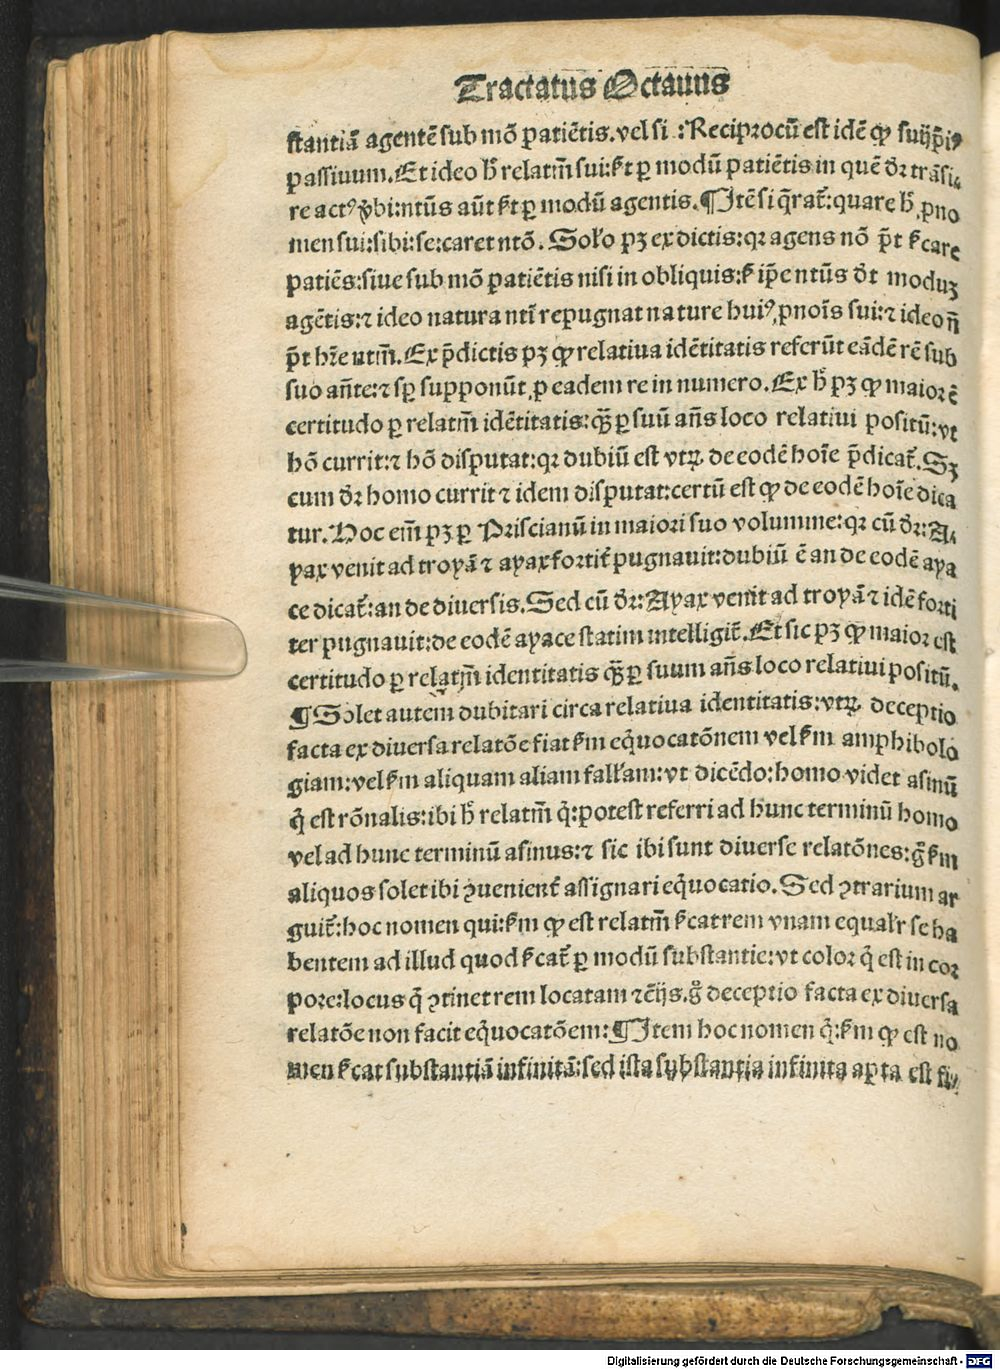 Tractatus Octauus
stantiā agentē sub mō patiētis. vel si: Reciprocū est idē qď sui
passiuum. Et ideo h̄ relatm̄ sui: ſt per modū patiētis in quē dr̄ trāsi
re actꝰ v̄bi: ntūs aūt ſt ꝑ modū agentis. ¶ Itē si q̄rat̄: quare h̄ ꝓno
men sui: sibi: se: caret ntō. Solo pꝫ ex dictis: qꝛ agens nō pt̄ ſcare
patiēs: siue sub mō patiētis nisi in obliquis: ſ ip̄e ntūs dt̄ moduꝫ
agētis: ⁊ ideo natura nti repugnat nature huiꝰ ꝓnoīs sui: ⁊ ideo n̄
pt̄ hr̄e ntm̄. Ex p̄dictis pꝫ qď relatiua idētitatis referūt eādē rē sub
suo an̄te: ⁊ sꝑ supponūt ꝓ eadem re in numero. Ex h̄ pꝫ qď maior ē
certitudo ꝑ relatm̄ idētitatis: qꝫ ꝑ suū an̄s loco relatiui positū: vt
hō currit: ⁊ hō disputat: qꝛ dubiū est vtꝝ de eodē hoīe p̄dicat̄. Sꝫ
cum dr̄ homo currit ⁊ idem disputat: certū est qď de eodē hoīe dica
tur. Hoc em̄ pꝫ ꝑ Priscianū in maiori suo volumine: qꝛ cū dr̄: A
yax venit ad troyā ⁊ ayax fortit̄ pugnauit: dubiū ē an de eodē aya
ce dicat̄: an de diuersis. Sed cū dr̄: Ayax venit ad troyā ⁊ idē forti
ter pugnauit: de eodē ayace statim intelligit̄. Et sic pꝫ qď maior est
certitudo ꝑ relatm̄ identitatis qꝫ ꝑ suum an̄s loco relatiui positū.
¶ Solet autem dubitari circa relatiua identitatis: vtꝝ deceptio
facta ex diuersa relatōe fiat ſm eq̄uocatōnem vel ſm amphibolo
giam: vel ſm aliquam aliam fall'am: vt dicēdo: homo videt asinū
q̄ est rōnalis: ibi h̄ relatm̄ q̄: potest referri ad hunc terminū homo
vel ad hunc terminū asinus: ⁊ sic ibi sunt diuerse relatōnes: g̊ ſm
aliquos solet ibi ꝯuenient̄ assignari eq̄uocatio. Sed ꝯtrarium ar
guit̄: hoc nomen qui: ſm qď est relatm̄ ſcat rem vnam equalr̄ se ha
bentem ad illud quod ſcat̄ ꝑ modū substantie: vt color q̄ est in cor
pore: locus q̄ ꝯtinet rem locatam ⁊ c̄ijs. g̊ deceptio facta ex diuersa
relatōe non facit eq̄uocatōem: ¶ Item hoc nomen q̄: ſm qď est no
men ſcat substantiā infinitā: sed ista substantia infinita apta est
Digitalisierung gefördert durch die Deutsche Forschungsgemeinschaft - DFG